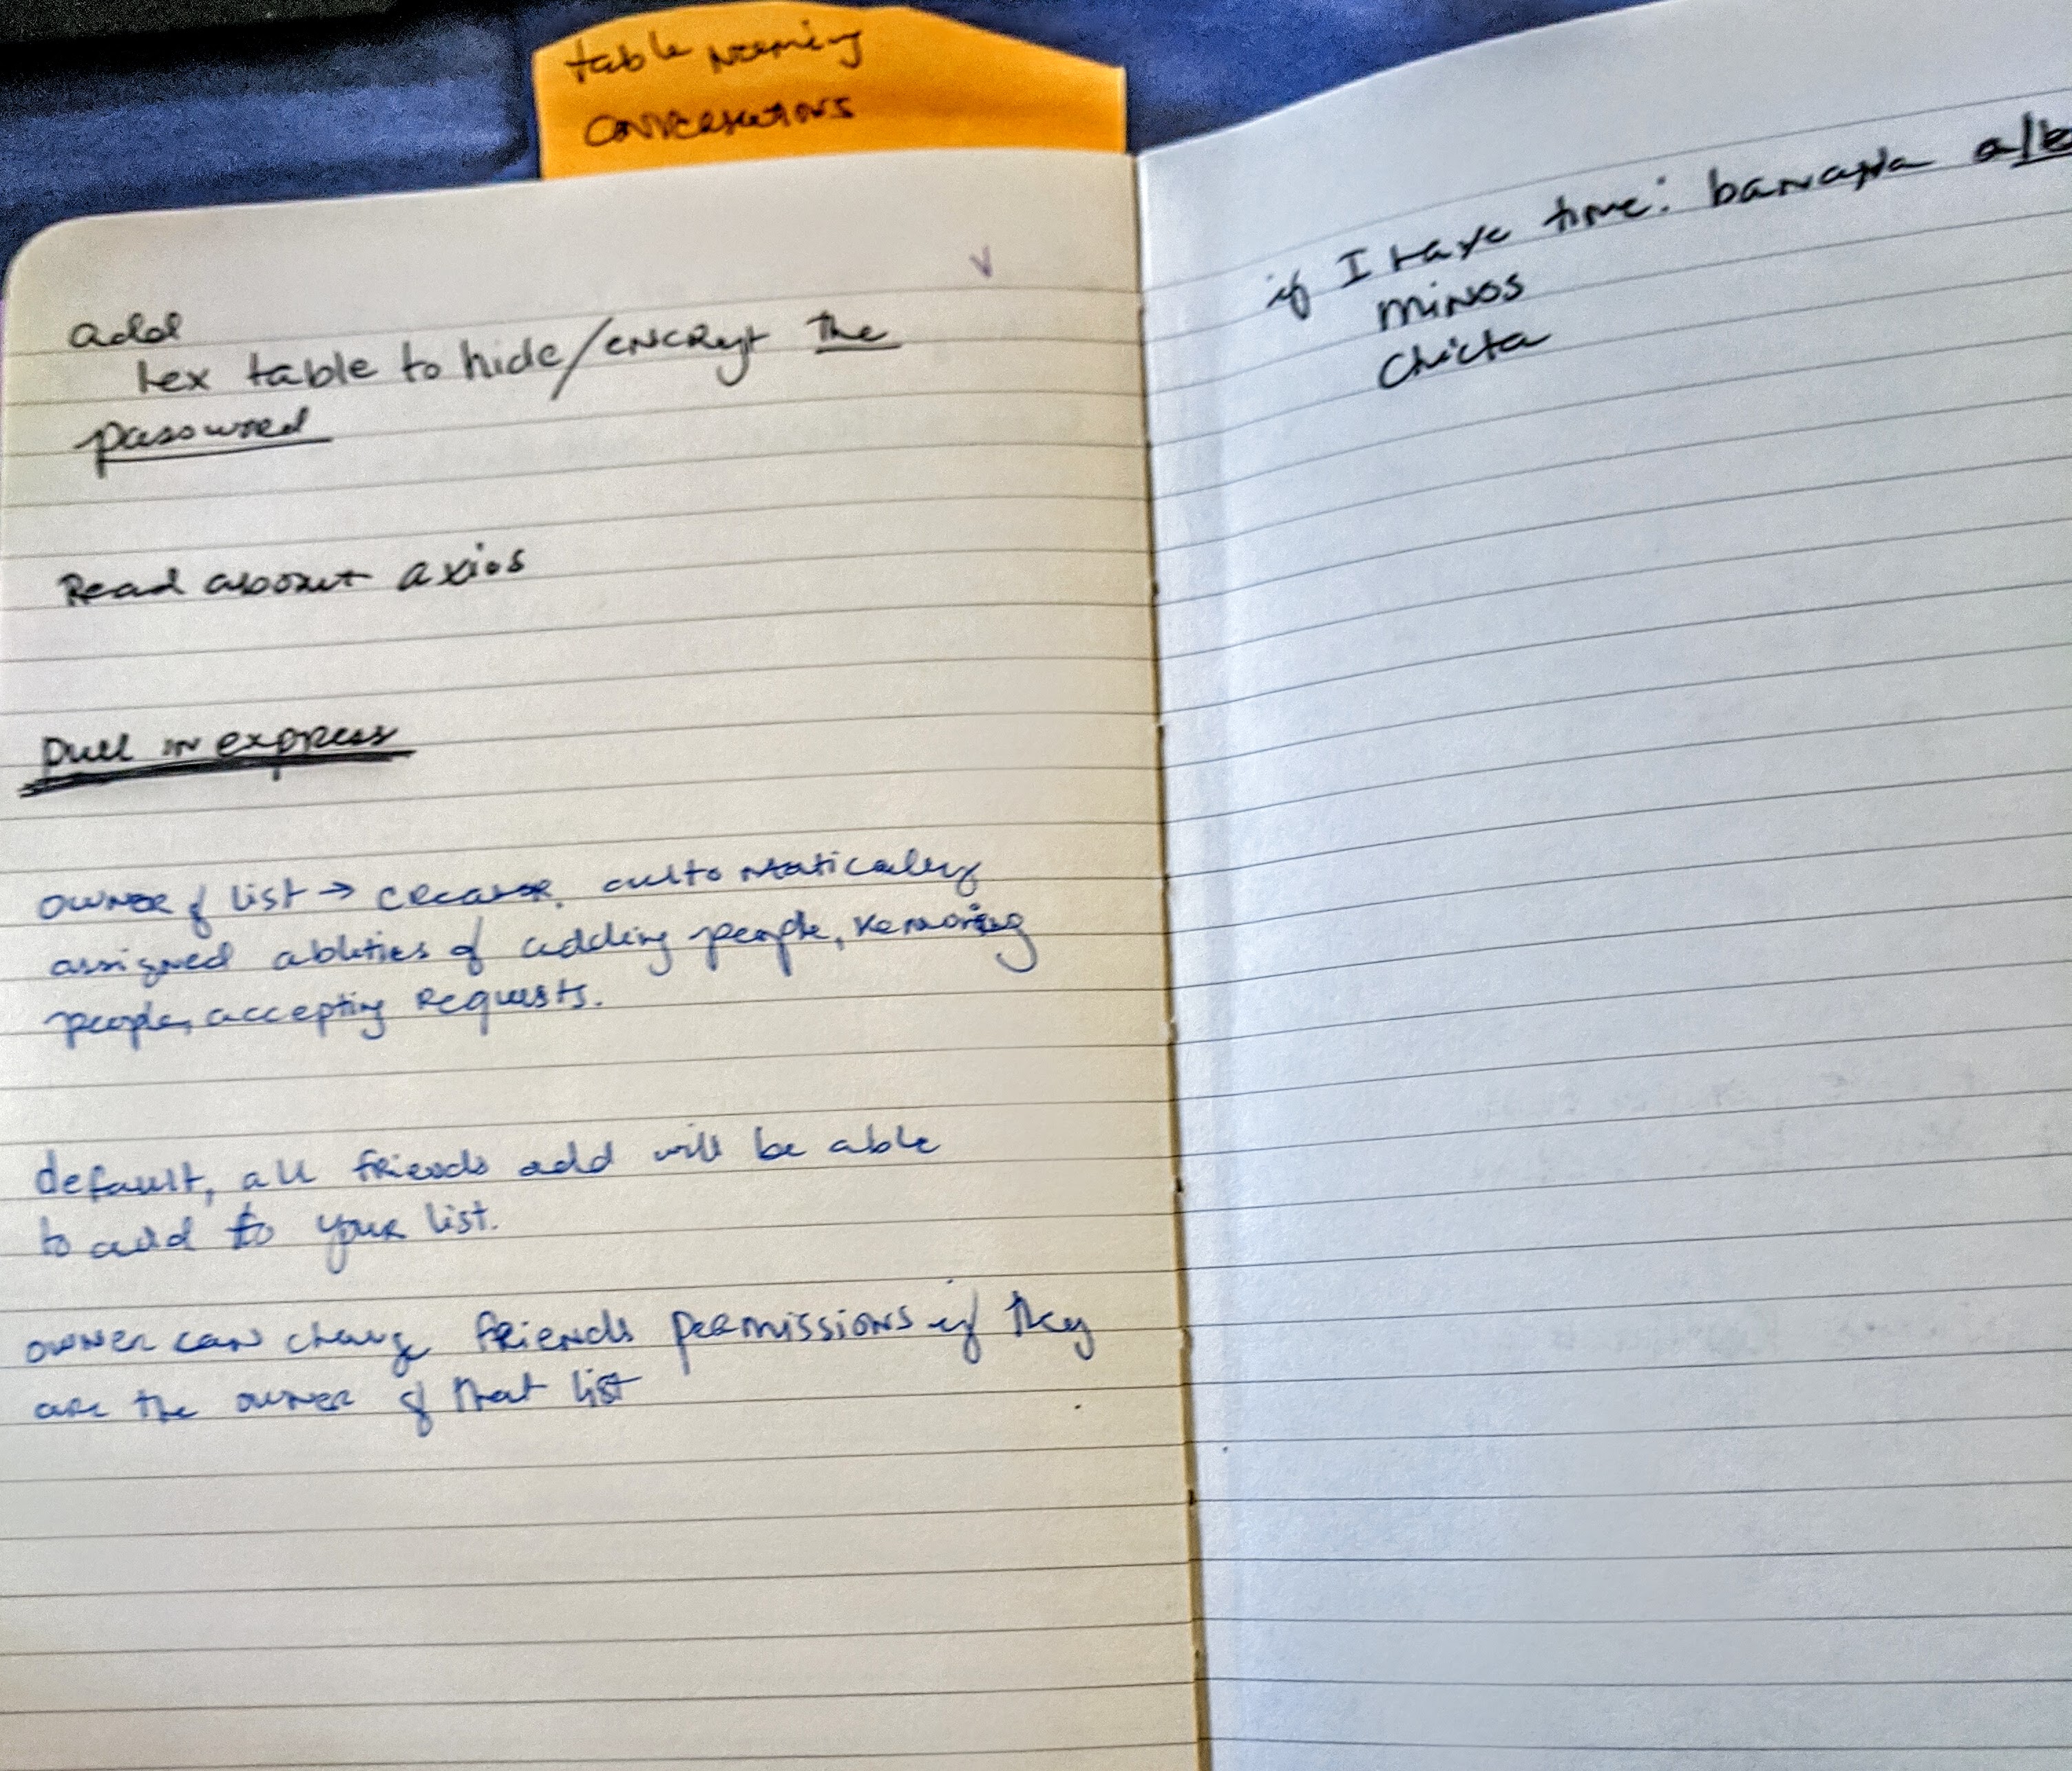 table naming
conversations
add
hex table to hide/encrypt the
password
Read about axios
pull in express
owner of list → creator. automatically
assigned ablities of adding people, removing
people, accepting requests.
default, all friends add will be able
to add to your list.
owner can change friends permissions if they
are the owner of that list
if I have time: banana
minos